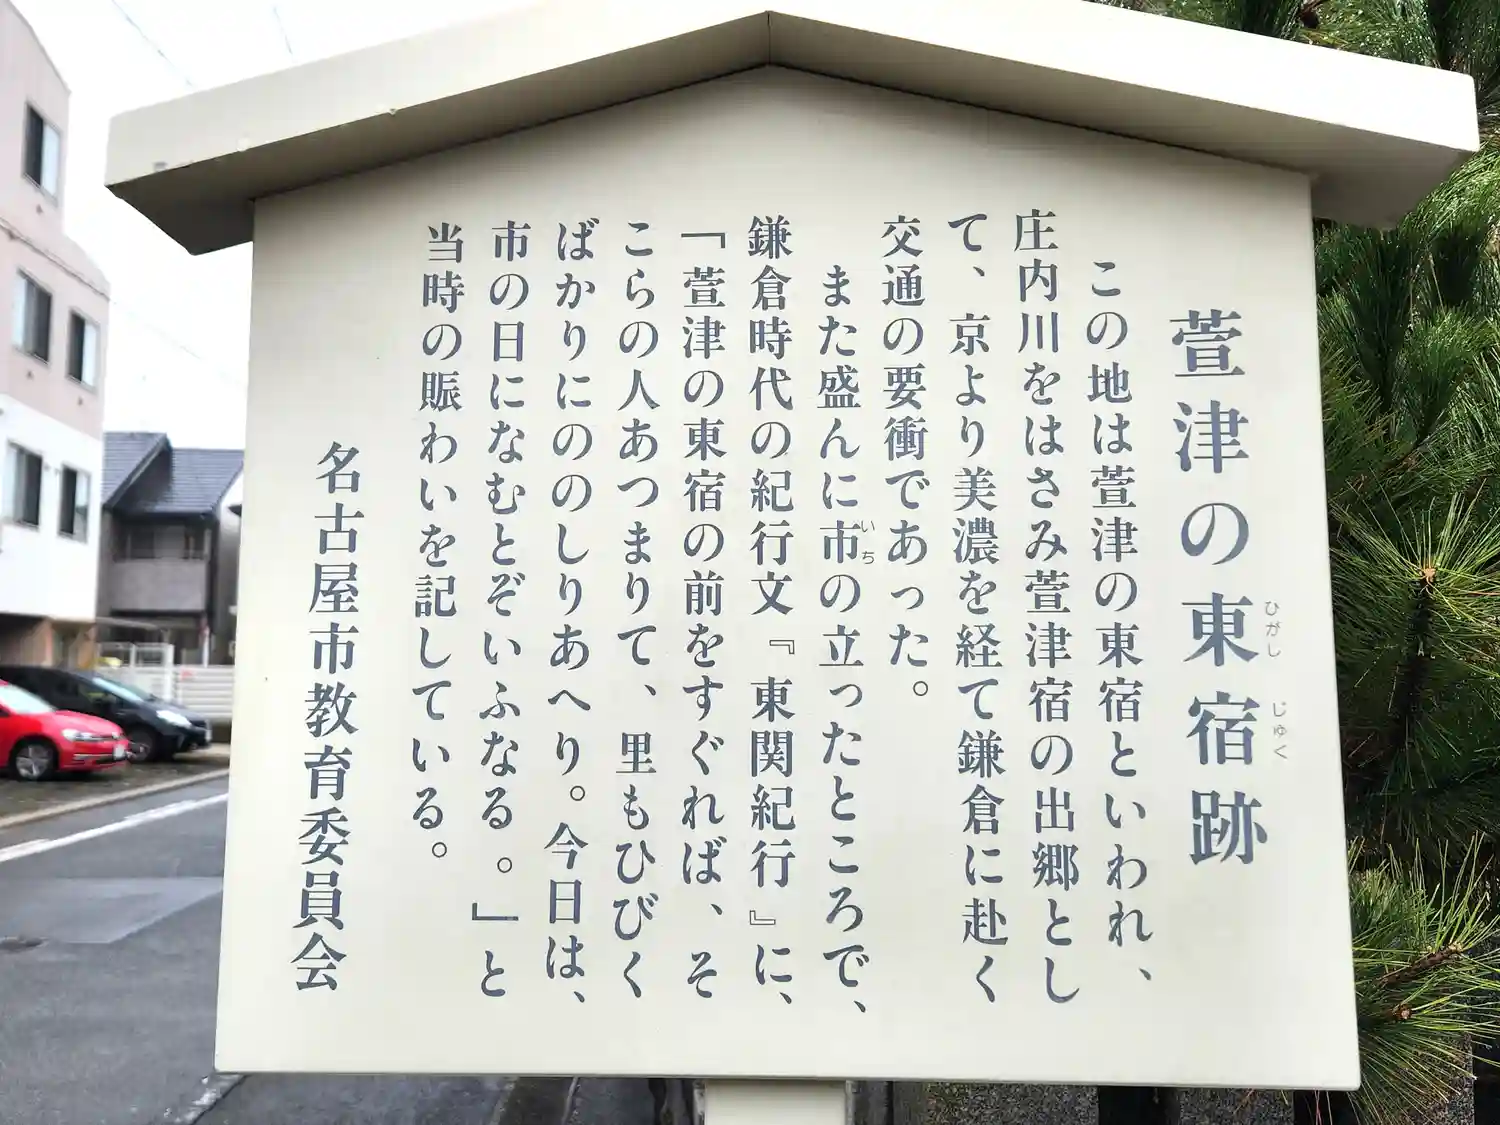 萱津の東宿跡
ひがし じゅく
この地は萱津の東宿といわれ、
庄内川をはさみ萱津宿の出郷とし
て、京より美濃を経て鎌倉に赴く
交通の要衝であった。
また盛んに市の立ったところで、
いち
鎌倉時代の紀行文『東関紀行』に、
「萱津の東宿の前をすぐれば、そ
こらの人あつまりて、里もひびく
ばかりにののしりあへり。今日は、
市の日になむとぞいふなる。」と
当時の賑わいを記している。
名古屋市教育委員会